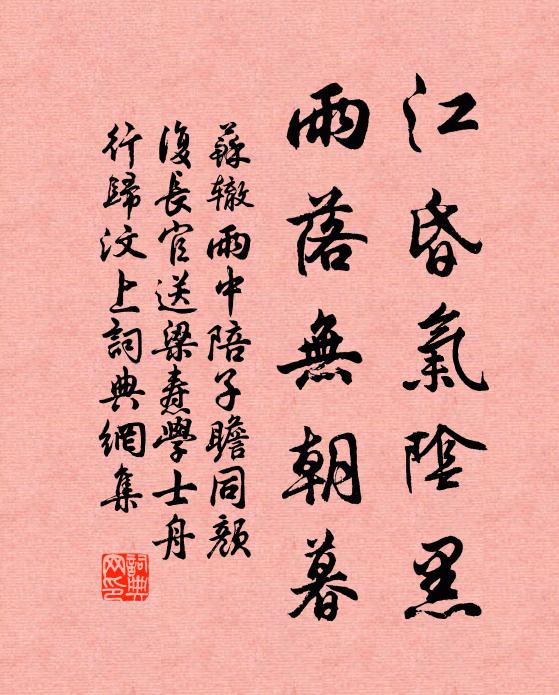 江昏氣陰黑
雨落無朝暮
蘇轍雨中陪子瞻同顏
復長官送梁燾學士舟
行歸汶上詞典網集
詞典
网印